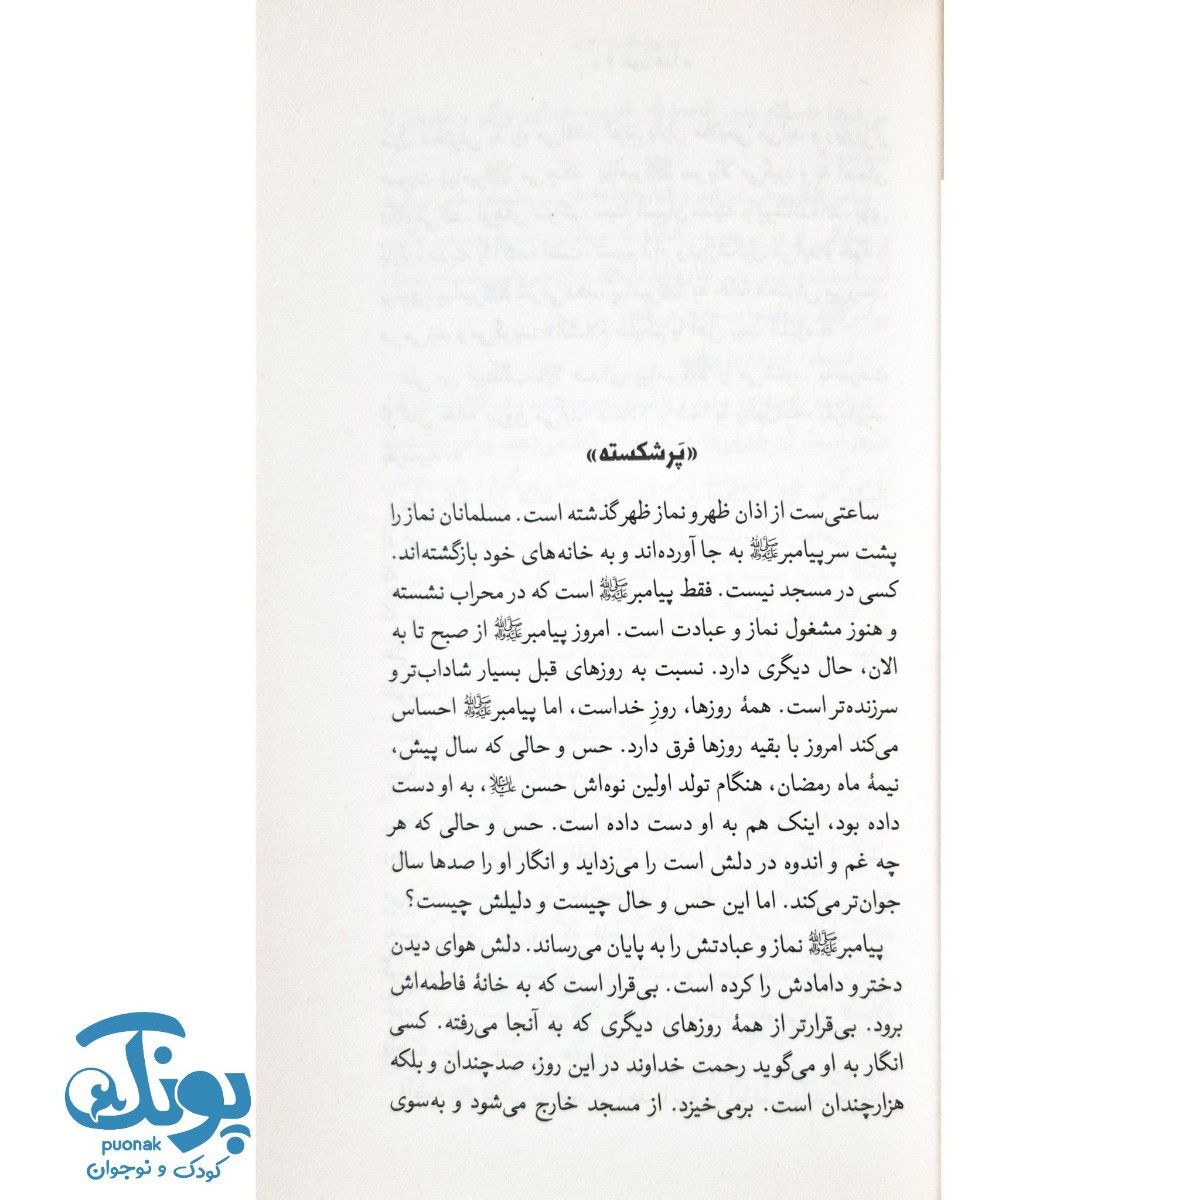 «پَر شکسته»
ساعتی‌ست از اذان ظهر و نماز ظهر گذشته است. مسلمانان نماز را
پشت سر پیامبرﷺ به جا آورده‌اند و به خانه‌های خود بازگشته‌اند.
کسی در مسجد نیست. فقط پیامبرﷺ است که در محراب نشسته
و هنوز مشغول نماز و عبادت است. امروز پیامبرﷺ از صبح تا به
الان، حال دیگری دارد. نسبت به روزهای قبل بسیار شاداب‌تر و
سرزنده‌تر است. همهٔ روزها، روزِ خداست، اما پیامبرﷺ احساس
می‌کند امروز با بقیه روزها فرق دارد. حس و حالی که سال پیش،
نیمهٔ ماه رمضان، هنگام تولد اولین نوه‌اش حسن علیه‌السلام، به او دست
داده بود، اینک هم به او دست داده است. حس و حالی که هر
چه غم و اندوه در دلش است را می‌زداید و انگار او را صدها سال
جوان‌تر می‌کند. اما این حس و حال چیست و دلیلش چیست؟
پیامبرﷺ نماز و عبادتش را به پایان می‌رساند. دلش هوای دیدن
دختر و دامادش را کرده است. بی‌قرار است که به خانهٔ فاطمه‌اش
برود. بی‌قرارتر از همهٔ روزهای دیگری که به آنجا می‌رفته. کسی
انگار به او می‌گوید رحمت خداوند در این روز، صدچندان و بلکه
هزارچندان است. برمی‌خیزد. از مسجد خارج می‌شود و به‌سوی
پونک
puonak
کودک و نوجوان